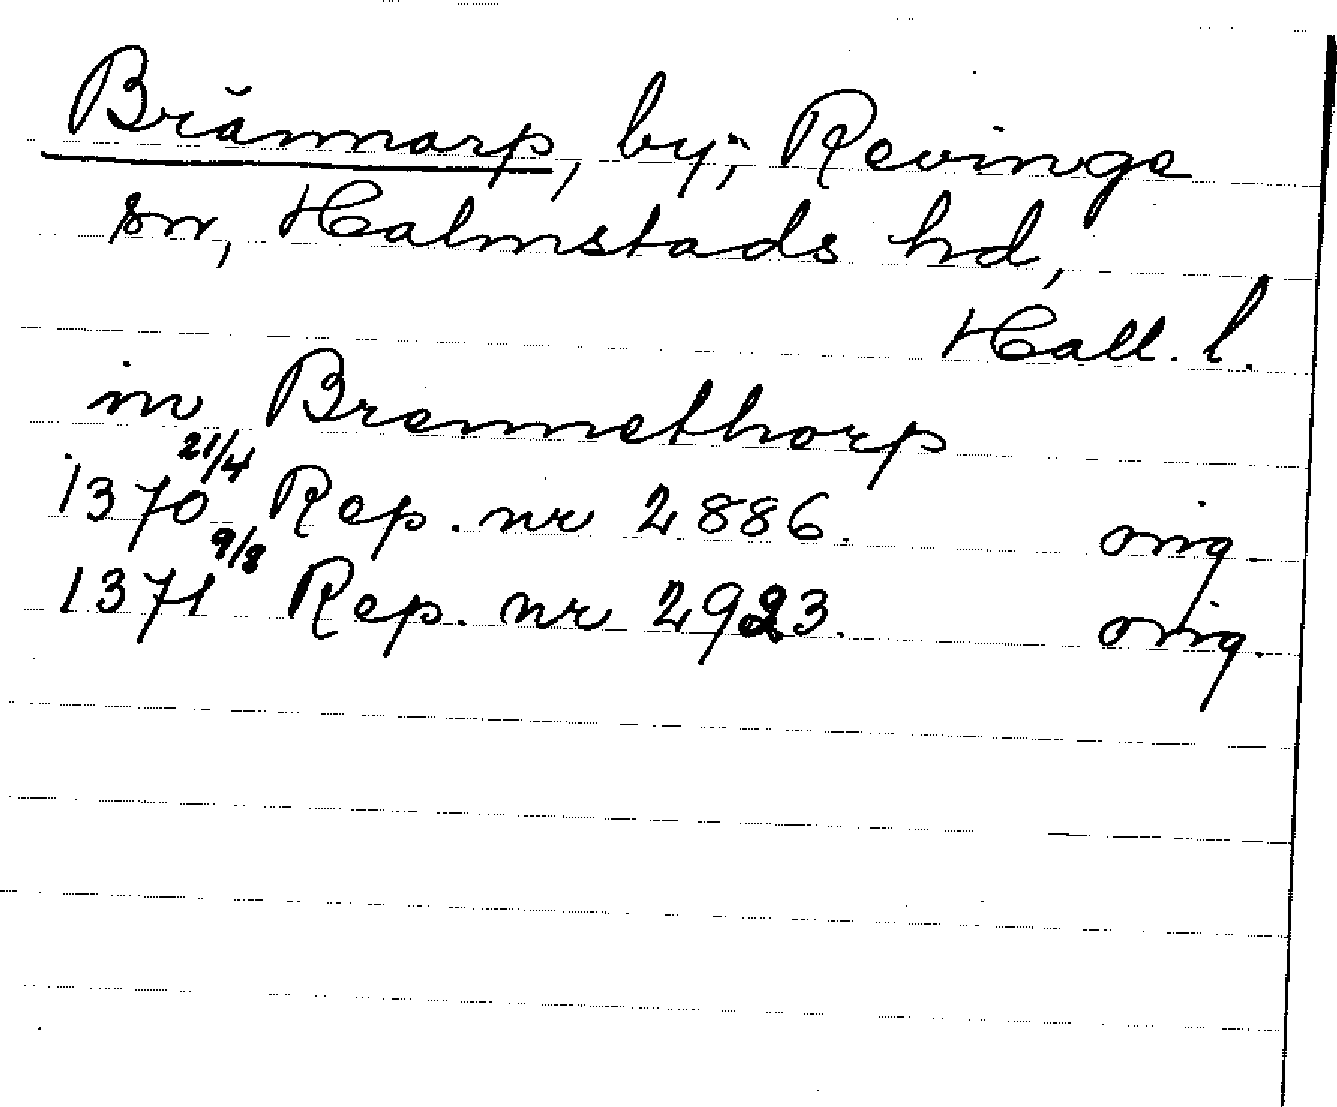 Brännarp, by; Revinge
sn, Halmstads hd,
Hall. l.
in Brennethorp
1370 21/4 Rep. nr 2886. orig.
1371 9/8 Rep. nr 2923. orig.